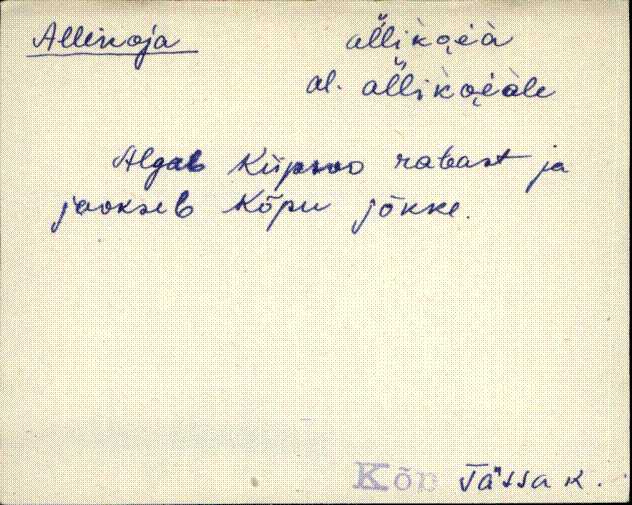 Allikoja al̀likọèà
al. al̀likọèàle
Algab Kiipsoo rabast ja
jookseb Kõpu jõkke.
Kõp Tässa k.